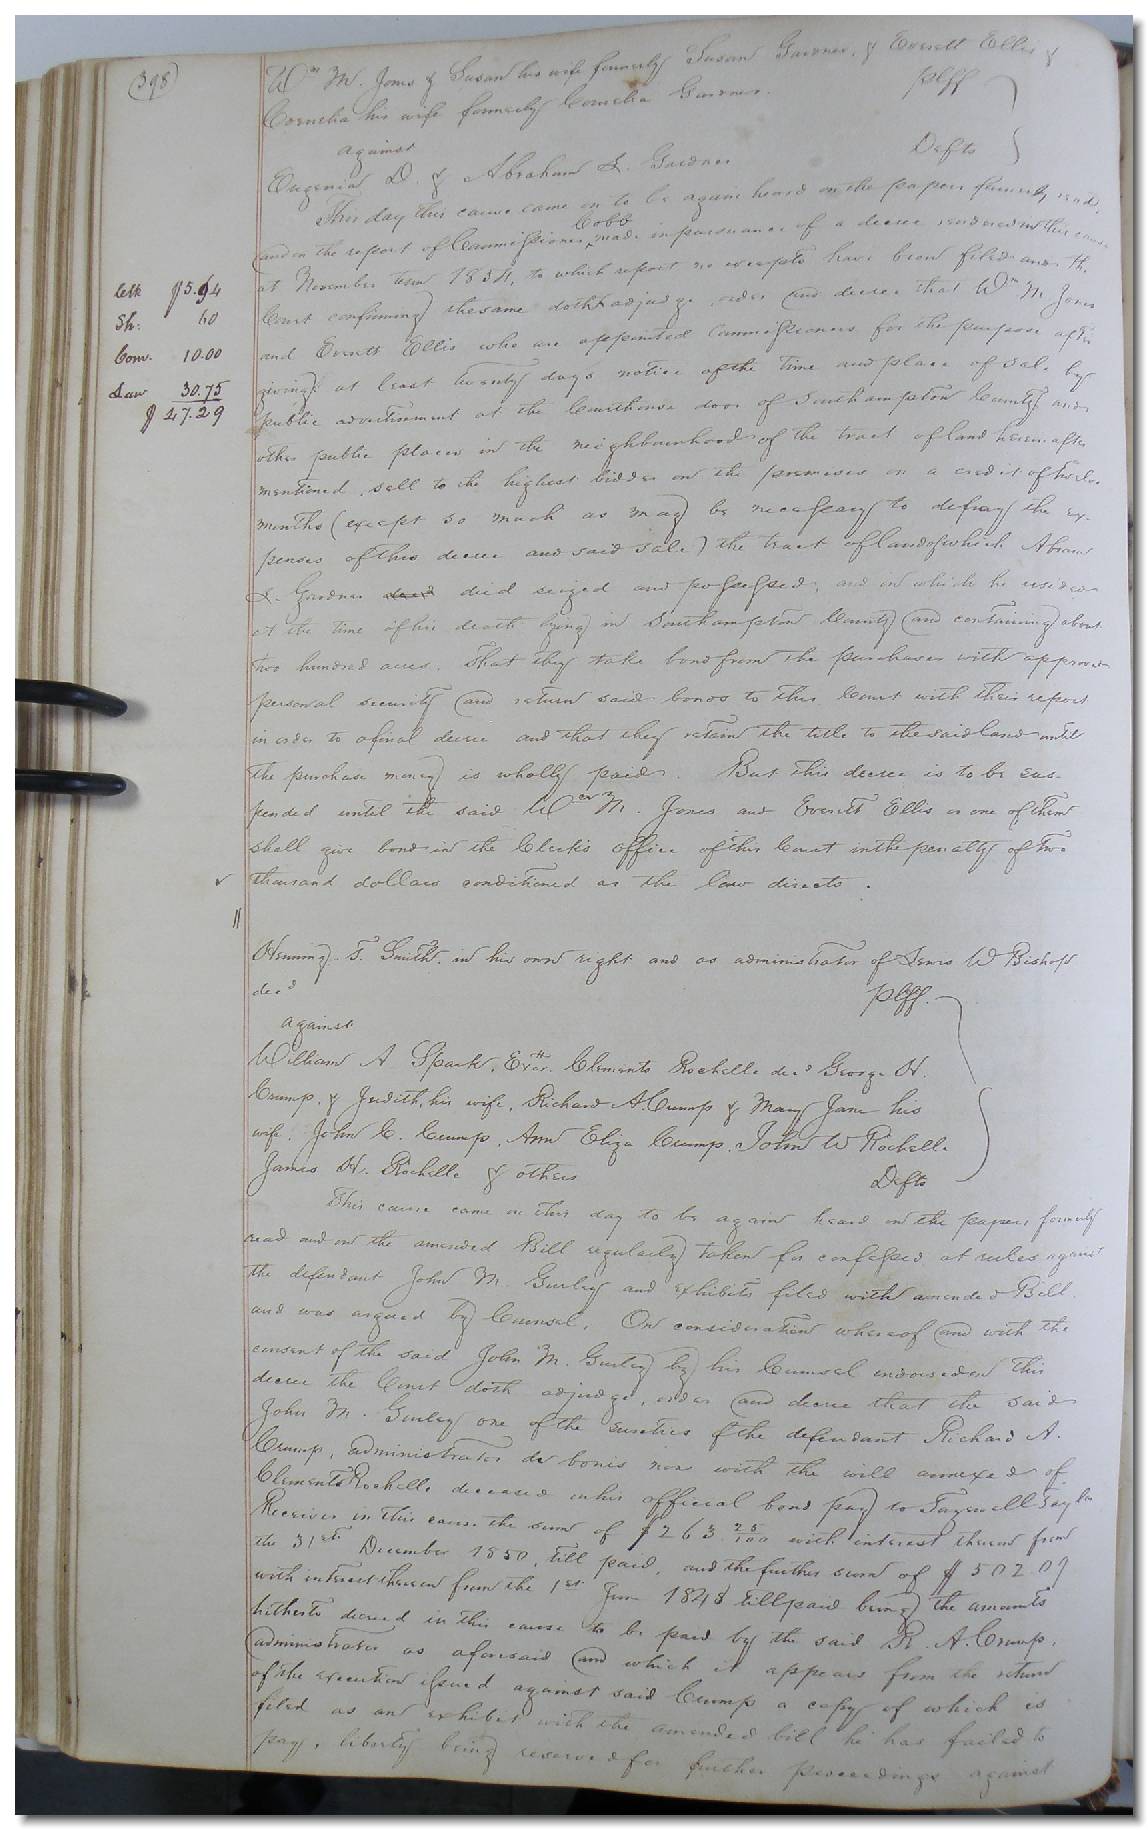 398
Wm M. Jones & Susan his wife formerly Susan Gardner, & Everett Ellis &
Cornelia his wife formerly Cornelia Gardner. plff
against
Eugenia D. & Abraham L. Gardner Defts
This day this cause came on to be again heard on the papers formerly read,
and on the report of Commissioner Cobb made in pursuance of a decree rendered in this cause
at November term 1854, to which report no excepts have been filed and the
Court confirming the same doth adjudge order and decree that Wm M. Jones
and Everett Ellis who are appointed Commissioners for the purpose after
giving at least twenty days notice of the time and place of sale by
public advertisement at the Courthouse door of Southampton County and
other public places in the neighbourhood of the tract of land herein after
mentioned, sell to the highest bidder on the premises on a credit of twelve
months (except so much as may be necessary to defray the ex-
penses of this decree and said sale) the tract of land of which Abram
L. Gardner died seized and possessed, and on which he resided
at the time of his death lying in Southampton County and containing about
two hundred acres. That they take bond from the purchaser with approved
personal security and return said bonds to this Court with their report
in order to a final decree and that they retain the title to the said land until
the purchase money is wholly paid. But this decree is to be sus-
pended until the said Wm M. Jones and Everett Ellis or one of them
shall give bond in the Clerk's office of this Court in the penalty of two
thousand dollars conditioned as the law directs.
Clerk $5.94
Sh: 60
Com. 10.00
Law 30.75
$ 47.29
Henning T. Smith, in his own right and as administrator of Lewis W Bishop
decd plff.
against
William A Spark, Exor. Clements Rochelle decd George H.
Crump, & Judith, his wife, Richard A. Crump & Mary Jane his
wife, John C. Crump, Ann Eliza Crump, John W Rochelle
James H. Rochelle & others Defts
This cause came on this day to be again heard on the papers formerly
read and on the amended Bill regularly taken for confessed at rules against
the defendant John M. Gurley and exhibits filed with amended Bill
and was argued by Counsel. On consideration whereof and with the
consent of the said John M. Gurley by his Counsel endorsed on this
decree the Court doth adjudge, order and decree that the said
John M. Gurley one of the sureties of the defendant Richard A.
Crump, administrator de bonis non with the will annexed of
Clements Rochelle deceased in his official bond pay to Tazewell Taylor
Receiver in this cause the sum of $263.25/100 with interest thereon from
the 31st December 1850, till paid, and the further sum of $502.09
with interest thereon from the 1st June 1848 till paid being the amounts
hitherto decreed in this cause to be paid by the said R. A. Crump,
administrator as aforesaid and which it appears from the return
of the execution issued against said Crump a copy of which is
filed as an exhibit with the amended bill he has failed to
pay, liberty being reserved for further proceedings against